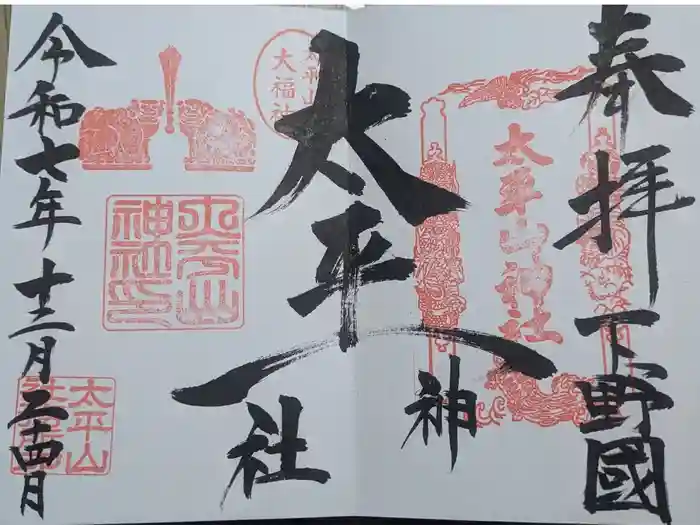 奉拝 下野國
太平山神社
太平山
神社
太平山
大福社
太平山
神社印
令和七年十二月二十四日
太平山